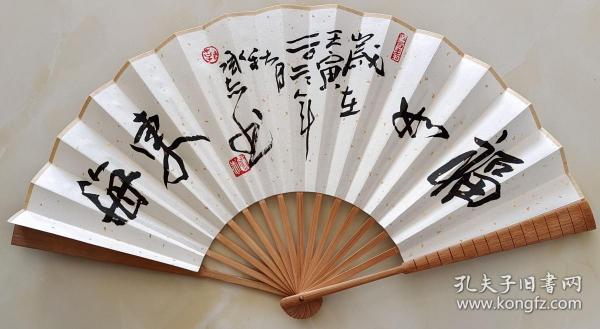 福
如
东
海
歲在
壬寅
年
秋月
书
孔夫子旧书网
www.kongfz.com